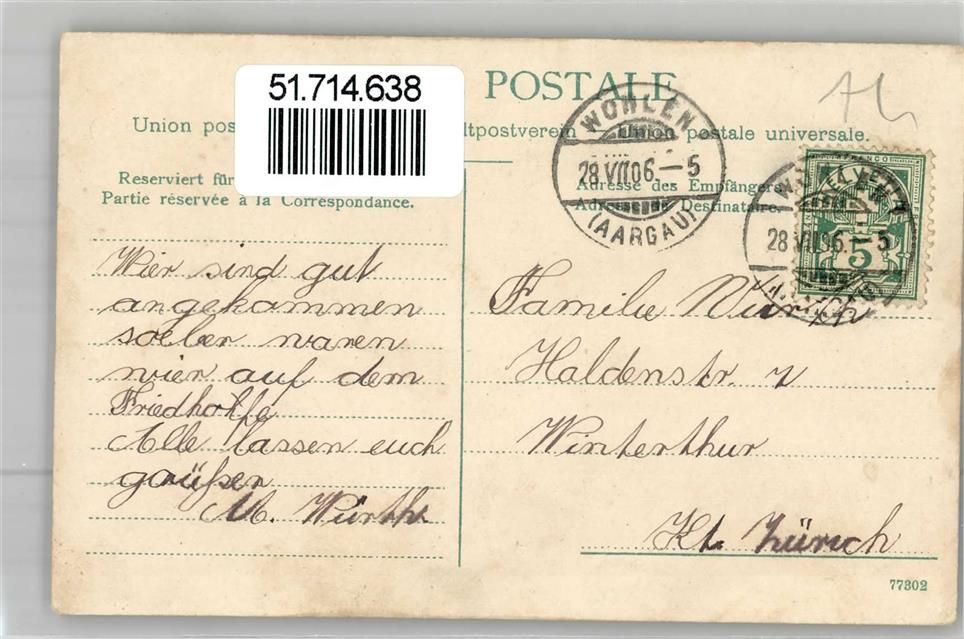 51.714.638
POSTALE
Union pos ltpostverein Union postale universale.
Reserviert für
Partie réservée à la Correspondance.
Adresse des Empfängers.
Adresse du Destinataire.
WOHLEN
28.VII.06.–5
(AARGAU)
FRANCO
HELVETIA
5
28.VII.06.–5
Wier sind gut
angekommen
soeber waren
wier auf dem
Friedhoffe
Alle lassen euch
grüßen
M. Würth
Familie Würth
Haldenstr.
Winterthur
Kt. Zürich
77302